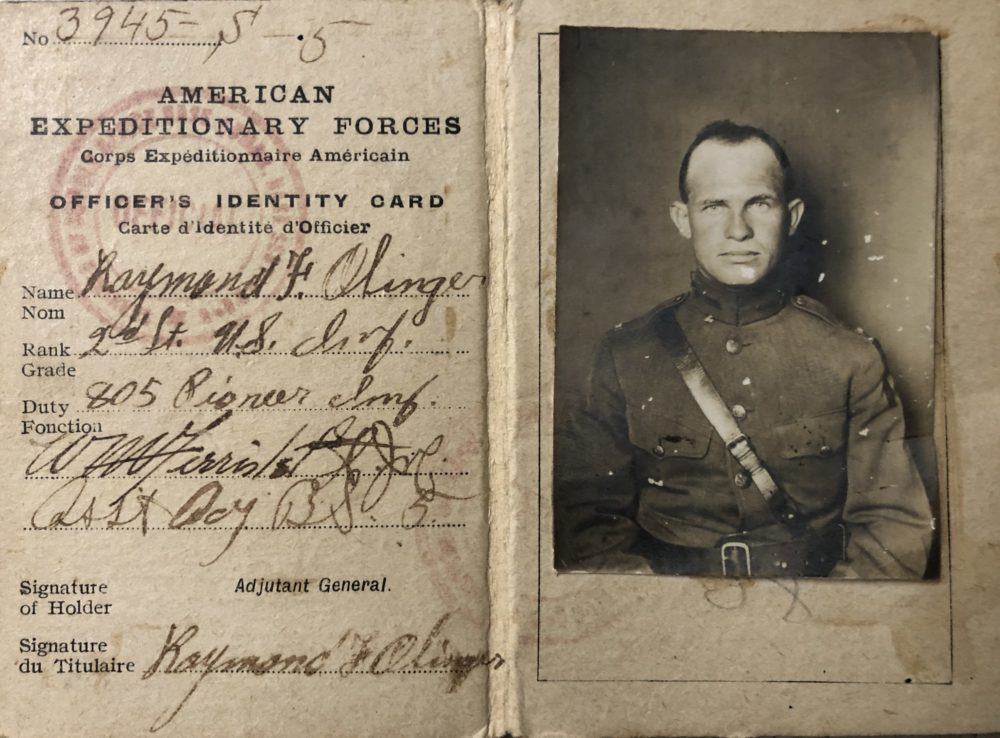 No 3945-S-5
AMERICAN
EXPEDITIONARY FORCES
Corps Expéditionnaire Américain
OFFICER'S IDENTITY CARD
Carte d'Identité d'Officier
Name Raymond F. Olinger
Nom
Rank 2nd Lt. U.S. Inf.
Grade
Duty 805 Pioneer Inf.
Fonction
1st Lt Inf.
Asst Adj B.S. 5
Signature Adjutant General.
of Holder
Signature
du Titulaire Raymond F Olinger